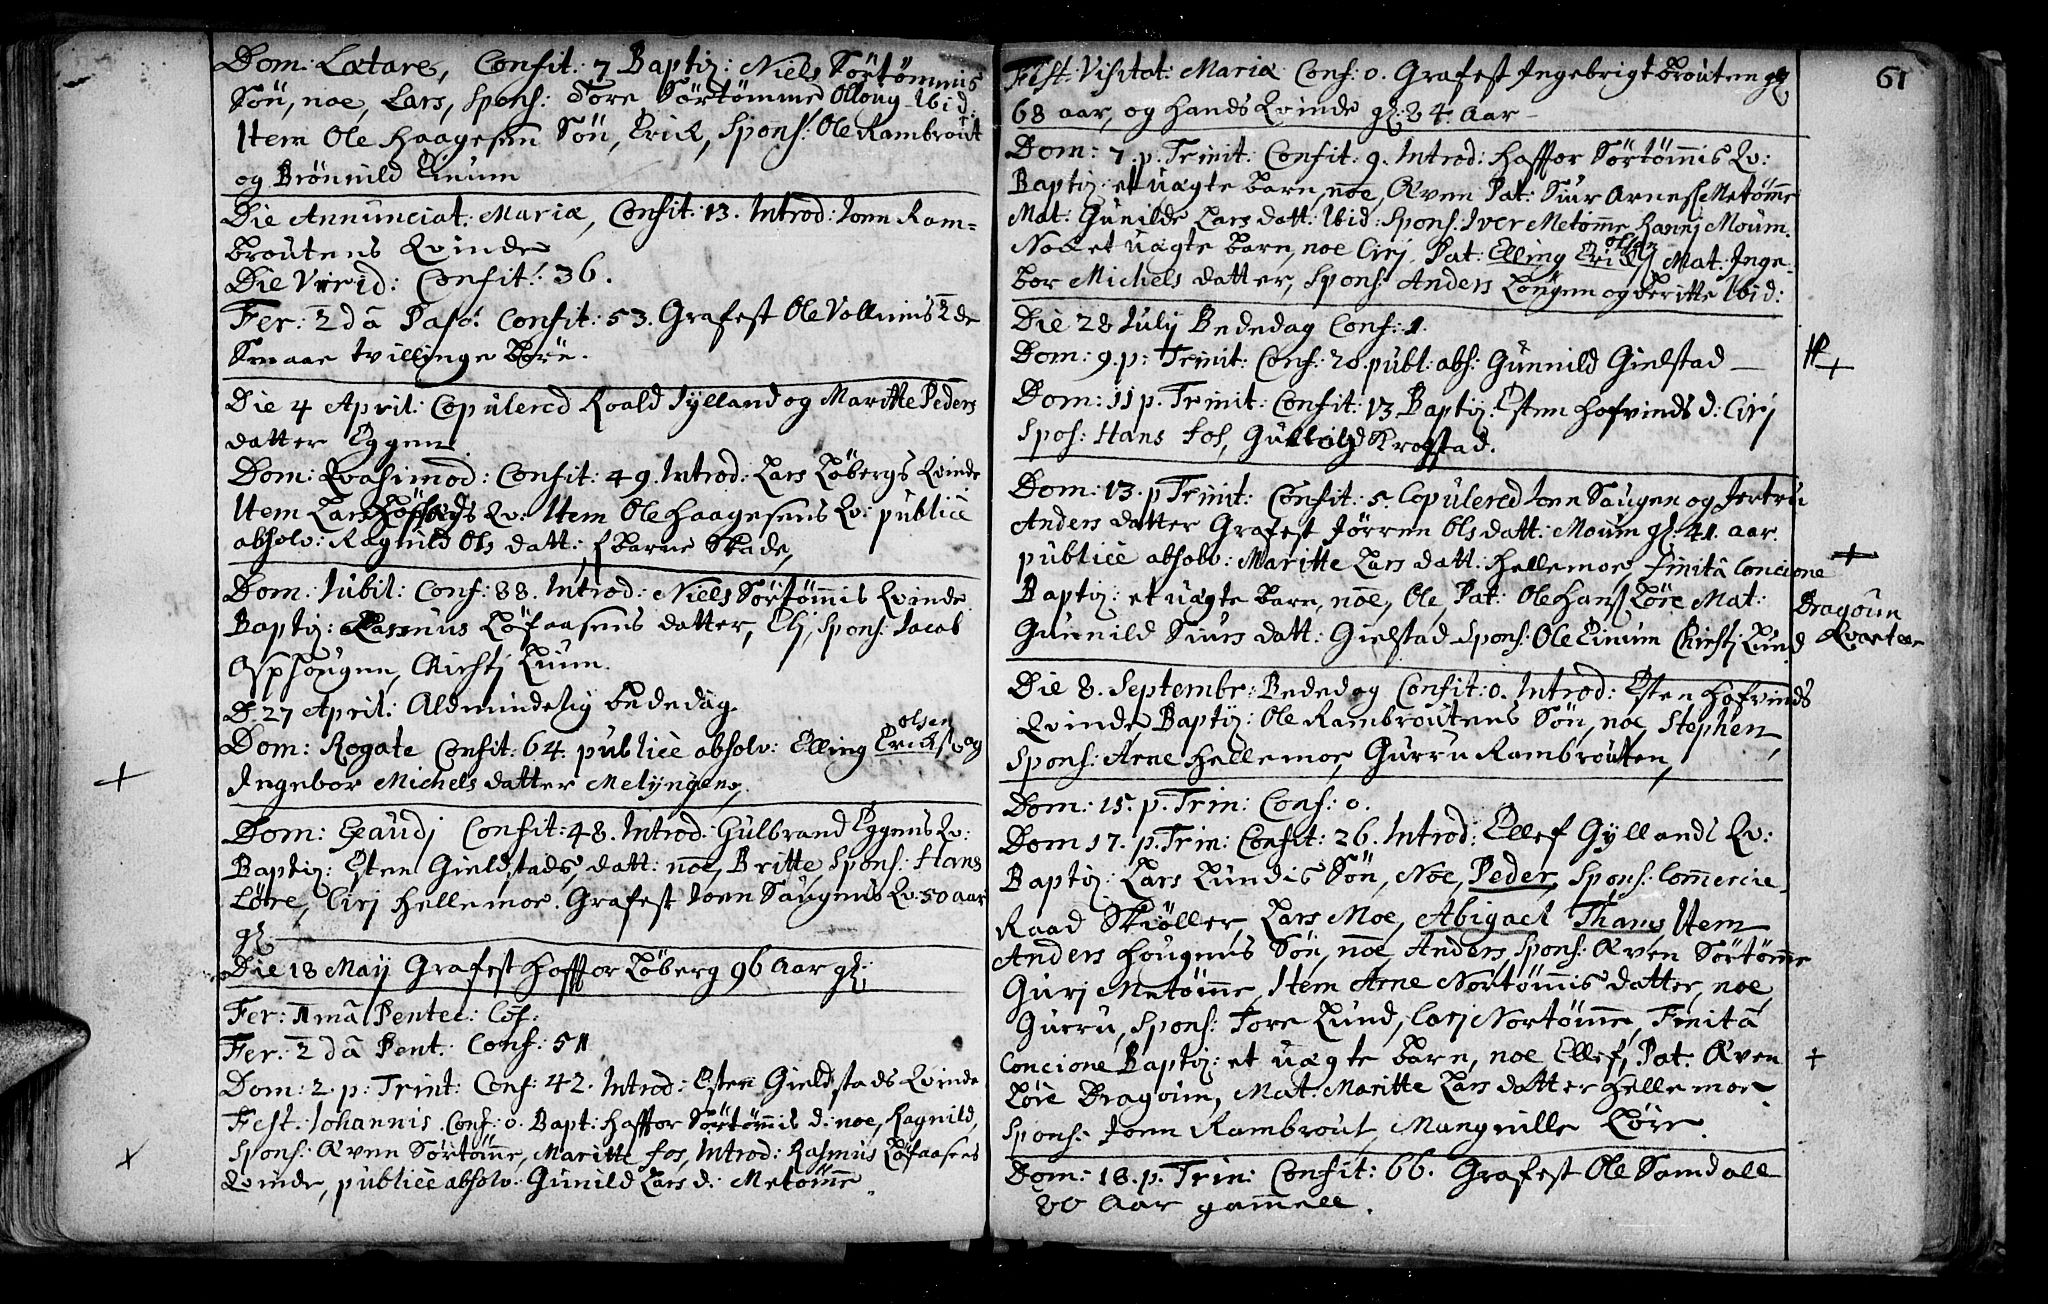 Dom: Lætare, Confit: 7 Baptiz: Niels Sörtömmis
Sön, noe, Lars, Spons: Tore Sörtömme Olloug Ibid:
Item Ole Haagesen Sön, Erick, Spons: Ole Rambrout
og Brönnild Einum
Die Annunciat: Mariæ, Confit: 13. Introd: Joen Ram-
broutens Qvinde
Die Virid: Confit: 36.
Fer: 2da Pasc: Confit: 53. Grafest Ole Vollnis 2de
Smaae tvillinge börn.
Die 4 April: Copulered Roald Jylland og Maritte Peders
datter Eggen
Dom: Qvasimod: Confit: 49. Introd: Lars Löbergs Qvinde
Item Lars Qv: Item Ole Haagesens Qv: publicè
absolv: Ragnild Ols datt: f barne Skade,
Dom: Jubil: Conf: 88. Introd: Niels Sörtömmis Qvinde
Baptiz: Rasmus Löfaasens datter, Eli, Spons: Jacob
Asphougen, Kirsti Luum.
D. 27 April: Aldmindelig bededag.
olsen
Dom: Rogate Confit: 64. publicè absolv: Elling Erichs: og
Ingebor Michels datter Melyngen,
Dom: Exaudi Confit: 48. Introd: Gulbrand Eggens Qv:
Baptiz: Esten Gielstads datt: noe, Britte, Spons: Hans
Löre, Ciri Hellemoe. Grafest Joen Saugens Qv: 50 aar
gl:
Die 18 Maij Grafest Haffor Löberg 96 Aar gl:
Fer: 1mâ Pentec: Cof:
Fer: 2dâ Pent: Conf: 51
Dom: 2. p: Trint: Conf: 42. Introd: Esten Gieldstads Qvinde
Fest: Johannis Conf: 0. Bapt: Haffor Sörtömmis d: noe, Ragnild,
Spons: Æven Sörtömme, Maritte fos, Introd: Rasmus Löfaasens
Qvinde, publicè absolv: Gunild Lars d: Metömme.
61
Fest: Visitat: Mariæ Conf: 0. Grafest Ingebrigt brouten gl:
68 aar, og hands Qvinde gl: 84. Aar
Dom: 7. p. Trinit: Confit: 9. Introd: Haffor Sörtömmis Qv:
Baptiz: et uægte barn, noe, Æven Pat: Siur Arnes: Metömme
Mat: Gunilde Lars datt: Ibid: Spons: Iver Metömme, Kanni Moum.
olsen
Nok et uægte barn, noe Ciri Pat: Elling Erichs Mat: Inge-
bor Michels datter, Spons: Anders Löngen og beritte Ibid:
Die 28 July Bededag Conf: 1.
Dom: 9. p: Trinit: Conf: 20. publ: abs: Gunnild Gielstad
Dom: 11 p. Trinit: Confit: 13 Baptiz: Esten Hofvinds d: Ciri
Spos: Hans fos, Gunild Krogstad.
Dom: 13. p Trinit: Confit: 5. Copulered Joen Saugen og Jertru
Anders datter Grafest Jörren Ols datt: Moum gl: 41. aar.
publicè absolv: Maritte Lars datt: Hellemoe, Finitâ Concione
Baptiz: et uægte barn, noe, Ole, Pat: Ole Hans: Löre Mat:
Gunnild Siurs datt: Gielstad Spons: Ole Einum Chirsti Lund
Dragoun
Qvarteer
Die 8. Septembr: Bededag Confit: 0. Introd: Esten Hofvinds
Qvinde, Baptiz: Ole Rambroutens Sön, noe, Stephen,
Spons: Arne Hellemoe, Gurru Rambrouten,
Dom: 15. p. Trin: Conf: 0.
Dom 17. p. Trin: Confit: 26. Introd: Ellef Gyllands Qv:
Baptiz: Lars Lundis Sön, Noe, Peder, Spons: Commercie-
Raad Skiöller, Lars Moe, Abigael Thams Item
Anders Hougens Sön, noe, Anders, Spons: Æven Sörtömme
Guri Metömme, Item Arne Nortömmis datter, noe,
Gurru, Spons: Tore Lund, Cari Nortömme, Finitâ
Concione Baptiz: et uægte barn, noe Ellef, Pat: Æven
Löre Dragoun, Mat: Maritte Lars datter Hellemoe
Spons: Joen Rambrout, Mangnille Löre.
Dom: 18. p. Trin: Confit: 66. Grafest Ole Samdall
80 Aar gammell.